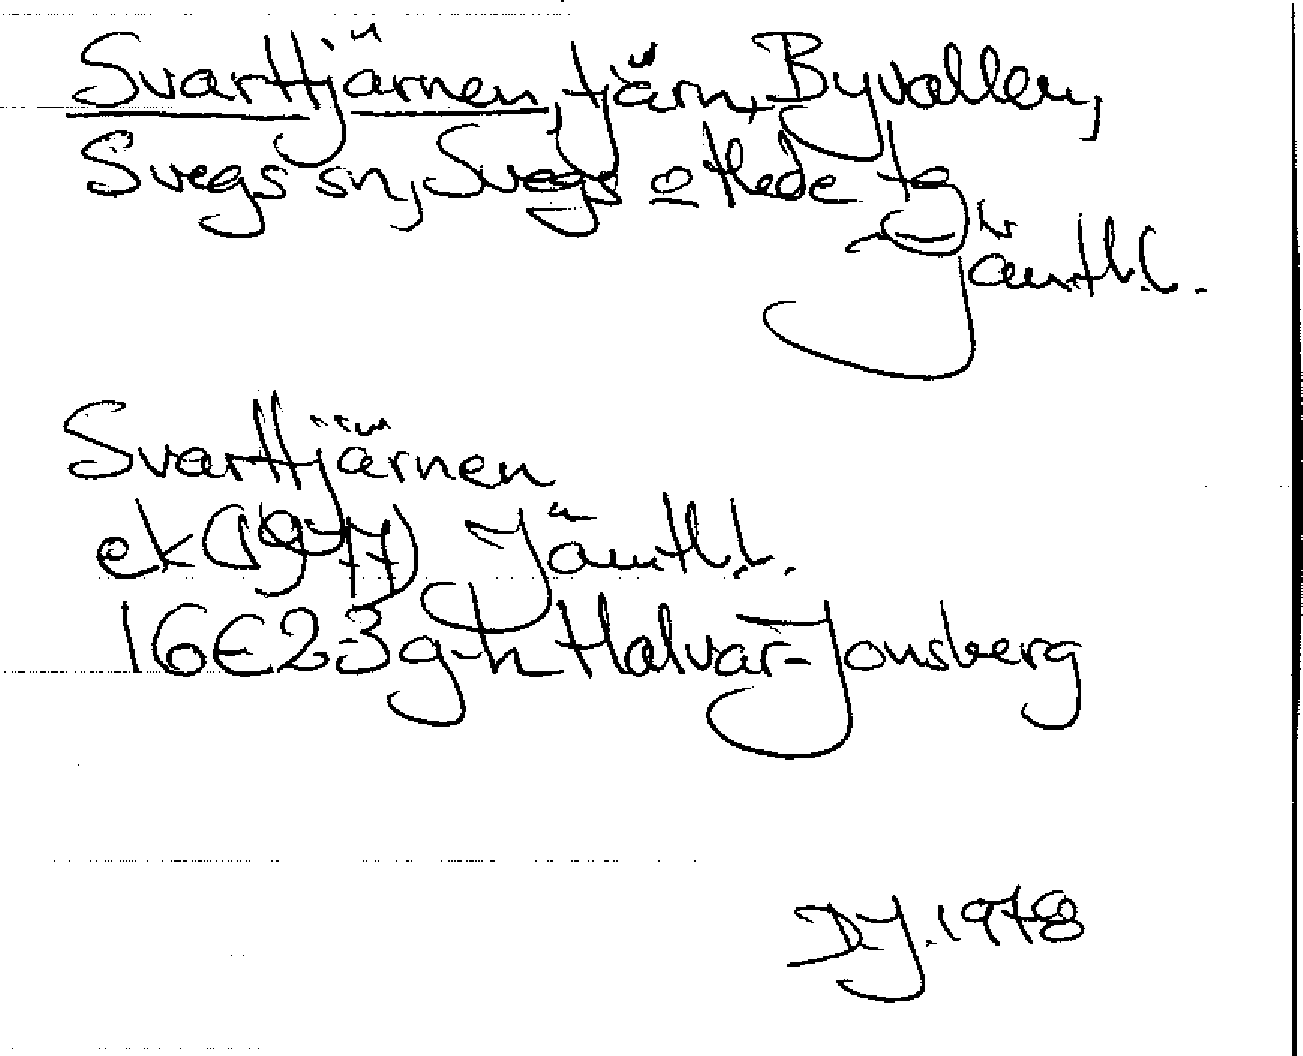 Svarttjärnen, tjärn, Byvallen,
Svegs sn, Svegs o Hede tg
Jämtl.l.
Svarttjärnen
ek (1977) Jämtl.l.
16E2-3g-h Halvar-Jonsberg
DJ. 1978